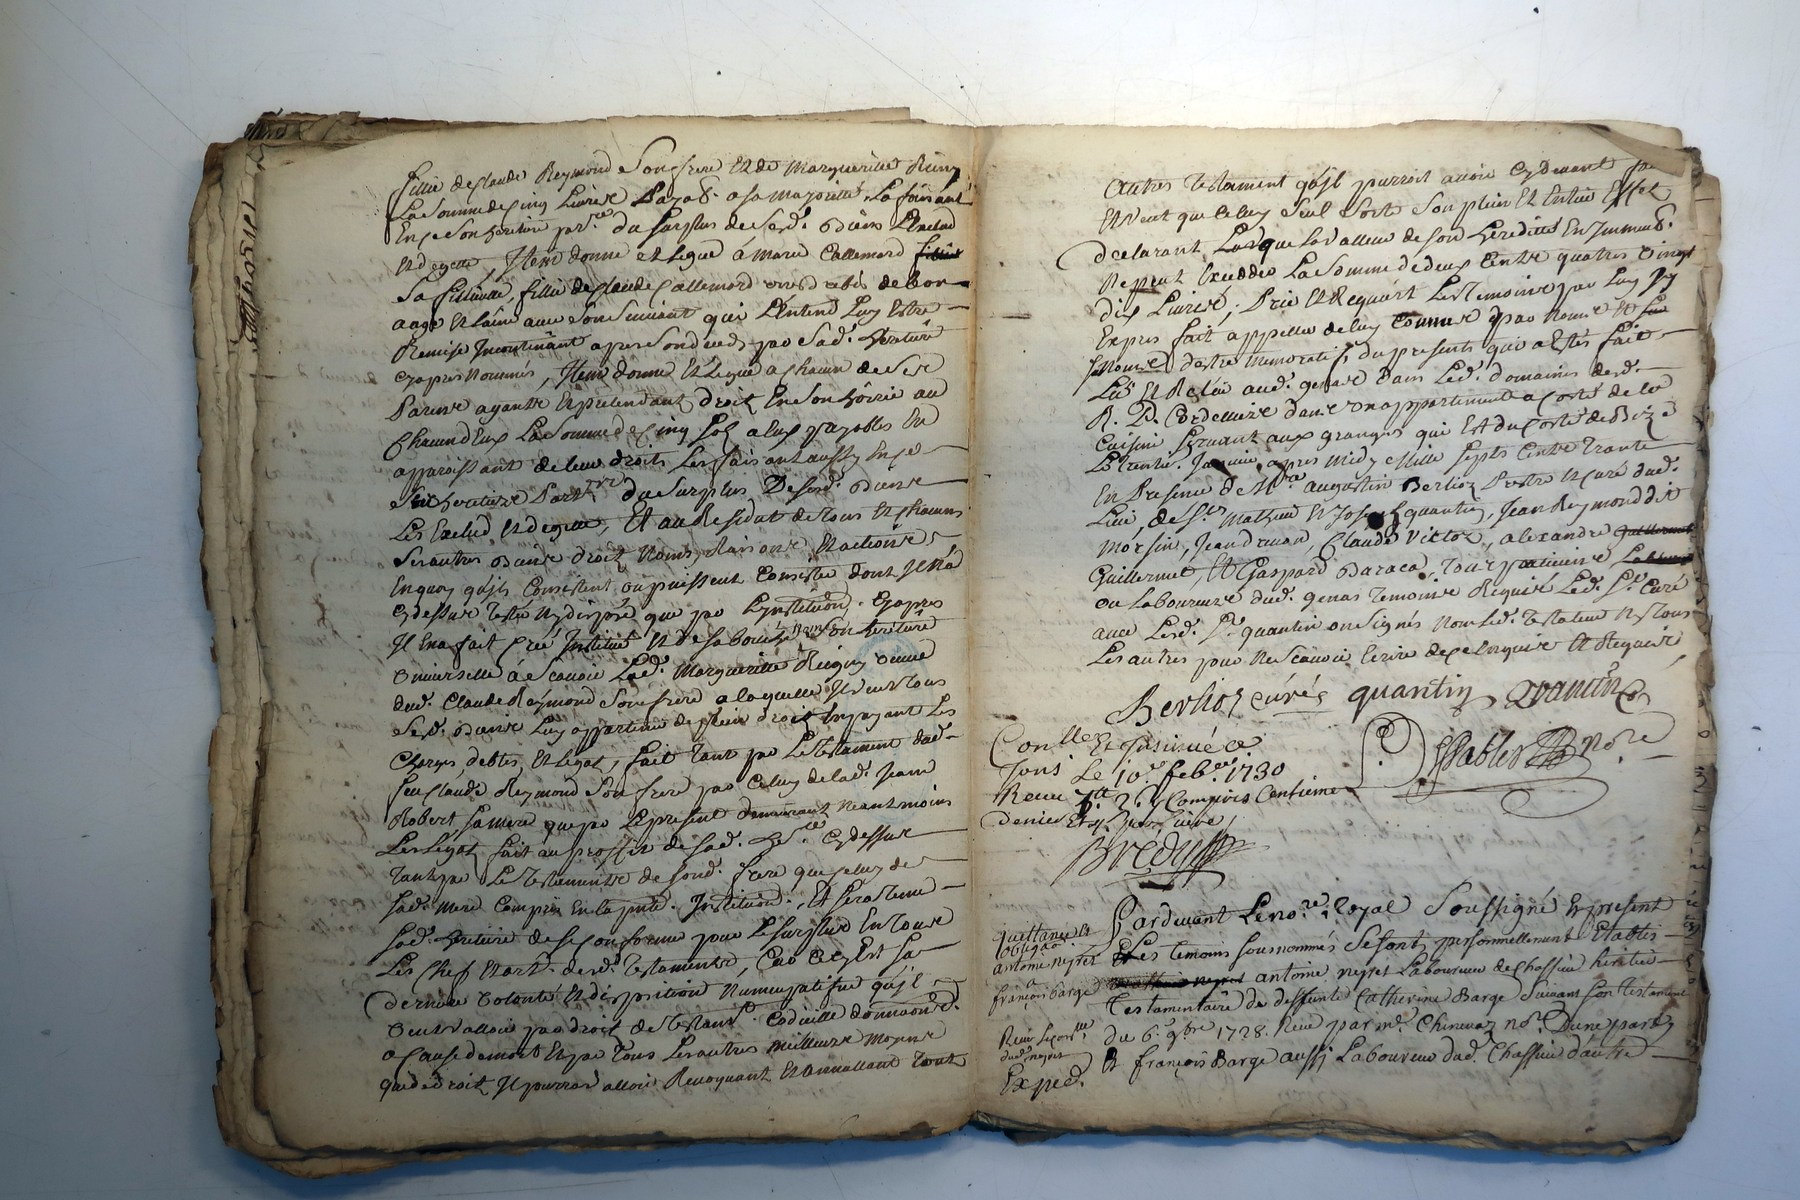 fillie de Claude Reymond Son frere Et de Marguerite
La Somme de Cinq Livres payab. a sa Majorité La faisant
En ce Son heritiere par.re du Surplus de Sesd. Biens L'Exclud
Et degette, Item donne et Legue à Marie Callemard
Sa fillieulle, fillie de Claude Callemard de bon
aage Et Laine avec Son Suivant qu'il Entend Luy Estre
Remise Incontinant apres Son deces par Sad. heritiere
Cy apres Nommée, Item donne Et Legue a Chacun de Ses
Parens ayants Et pretendants droit En Son hoirie au
Chacun d'Eux La Somme de Cinq Sols a Eux payables En
apparoissant de leurs droits Les faisant aussy En ce
Ses heritiers Part.res du Surplus De Sesd. Biens
Les Exclud Et degette, Et au Residut de tous Et Chacuns
Ses autres Biens droits Noms, Raisons, Et actions
En quoy qu'ils Consistent ou puissent Consister dont Il N'a
Cy dessus Testé Ny disposé que par L'Institution. Cy apres
Il En a fait Créé Institué Et de Sa bouche Nommé Son heritiere
Universelle à Scavoir Lad. Marguerite veuve
dud. Claude Reymond Son frere a laquelle Il veut tous
Sesd. Biens Luy appartenir de plein droit En payant Les
Charges, debtes, Et Legats, fait tant par Le Testament dud.
feu Claude Reymond Son frere par Celuy de lad. Jeanne
Robert Sa mere que par Le present demeurant Neantmoins
Les Legats fait au proffit de Sad. Cy dessus
Tant par Le Testament de Sond. frere que Celuy de
Sad. mere Compris En la pnte. Institution., Et Sera Tenue
Sad. heritiere de Se Conformer pour Le Surplus En tous
Les Chefs Et art. desd. Testaments, Car Ce Est Sa
derniere volonté Et disposition Nuncupative qu'il
veut valloir par droit de testam.t Codicille donnaõn
a Cause de mort Et par Tous Les autres meilleurs moyens
que de droit Il pourra valloir Revoquant Et annullant Tout
autres Testament qu'Il pourroit avoir Cy devant
Et Veut que Celuy Seul Sorte Son plein Et Entier Effet
declarant Que La valleur de Son heredité En Immeub.
Ne peut Exceder La Somme de deux Cents quatres vingt
dix Livres, Prie Et Requiert Les Temoins par Luy
Expres fait appeller de luy Connus par Noms Et
d'estre memoratif du presents qui a Estés fait
Lû Et Relû aud. genas Dans Led. domaines desd.
R. P. Cordeliers dans un appartement a Costé de la
Cuisine Servant aux granges qui Est du Costé de Bize
Le Trente. Janvier apres midy Mille Septs Cents Trante
En Presence de M.re Augustin Berlioz Prestre Et Curé dud.
Lieu, de S.rs Mathieu Et Joseph quantin, Jean Reymond dit
Morsin, Jean drevon, Claude Victoz, alexandre
Guillermet, Et Gaspard Baraca, Tous
ou Laboureurs dud. genas Temoins Requis Led. S.r Curé
avec Lesd. S.r quantin ont Signés Non Led. Testateur Ny tous
Les autres pour Ne Scavoir Ecrire de ce Enquis Et Requis
Berlioz curés quantin quantin
not.re
Con.lle Et Insinué a
Le 10.e feb.re 1730
Receu Compris Centieme
denier
Pardevant Le no.re Royal Soussigné Et present
Les Temoins Sousnommés Se font personnellement Etablis
antoine neyret Laboureur de Chassieu heritier
Testamentaire de deffunte Catherine Barge Suivant Son testament
du 6.e 9bre 1728. Receu par m.e Chinevaz no.re D'une part
Et françois Barge aussi Laboureur dud. Chassieu d'autre
quittance Et
obliga.on
antoine neyret
a
françois barge
Exped.